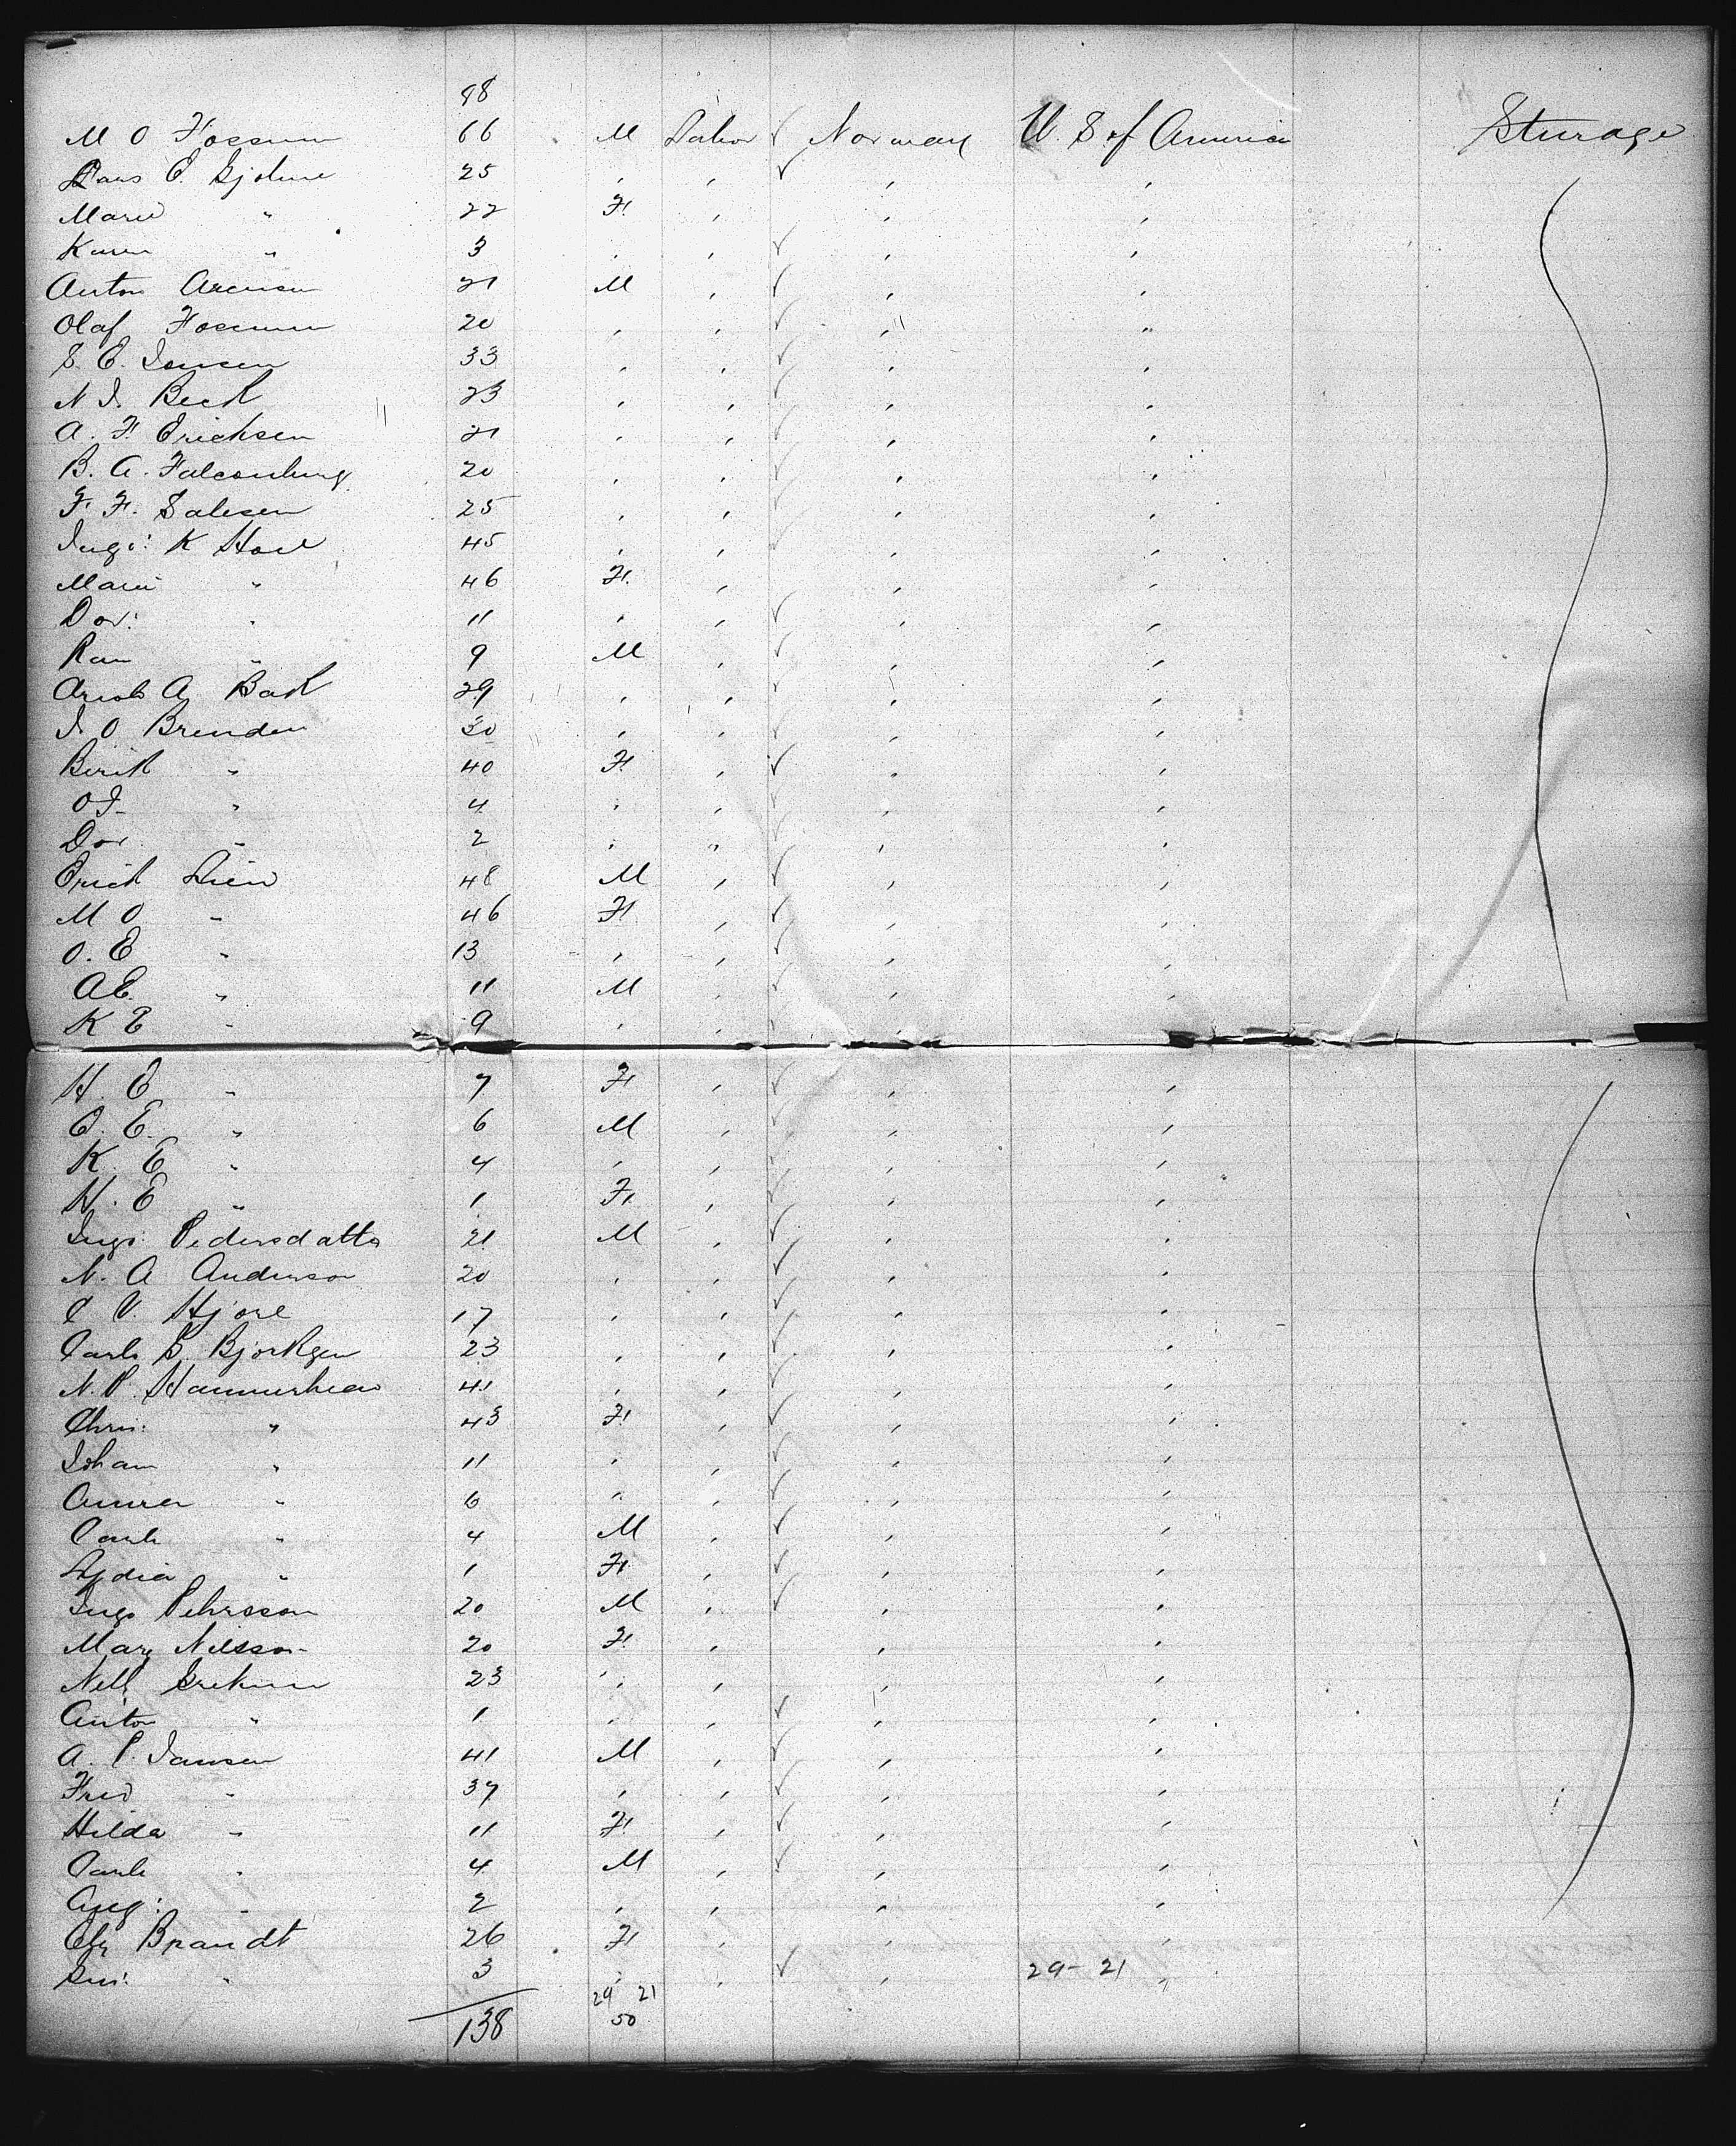 98
M O Fossum 66 M Labor ✓ Norway U. S. of America Sturage
Hans E. Gjolme 25 , , ✓ , ,
Marie " 22 F. , , ,
Karen " 3 , , ✓ , ,
Anton Arensen 21 M , ✓ , ,
Olaf Fossum 20 , , ✓ , "
S. E. Jonsen 33 , , ✓ , ,
N J. Beck 23 , , ✓ , ,
A. F. Erichsen 21 , , ✓ , ,
B. A. Falconburg 20 , , ✓ , ,
F. F. Salesen 25 , , ✓ , ,
Inge: K Hoel 45 , , ✓ , ,
Marie " 46 F. , , ,
Dor: " 11 , , ✓ , ,
Ran " 9 M , ✓ , ,
A. Bak 29 , , ✓ , ,
J. O Brenden 30 , , ✓ , ,
Berit " 40 F. , ✓ , ,
OJ- " 4 , , ✓ , ,
Dor. " 2 , " ✓ , ,
Erick Lien 48 M , ✓ , ,
M O " 46 F. , ✓ , ,
O. E " 13 , , ✓ , ,
A E. " 11 M , ✓ , ,
K E " 9 , , ✓ , ,
H. E " 7 F. , ✓ , ,
O. E. " 6 M , ✓ , ,
K. E " 4 , , ✓ , ,
H. E " 1 F. , ✓ , ,
Inge: Pedersdatter 21 M , ✓ , ,
N. A Anderson 20 , , ✓ , ,
C V. Hjorl 17 , , ✓ , ,
Carl S. Bjorkgen 23 , , ✓ , ,
N. P. 41 , , ✓ , ,
Chris: " 43 F. , ✓ , ,
Johan " 11 , , ✓ , ,
Anna " 6 , , ✓ , ,
Carl " 4 M , ✓ , ,
Lydia " 1 F. , ✓ , ,
Inge Pehrsson 20 M , ✓ , ,
Mary Nilsson 20 F. , , ,
Nelly 23 , , , ,
Anton " 1 , , ✓ , ,
A. P. Jansen 41 M , ✓ , ,
Fred " 37 , , ✓ , ,
Hilda " 11 F. , ✓ , ,
Carl " 4 M , ✓ , ,
Aug: " 2 , , , ,
Brandt 26 F. , ,
" 3 , , ✓ , 29- 21 ,
29 21
138 50